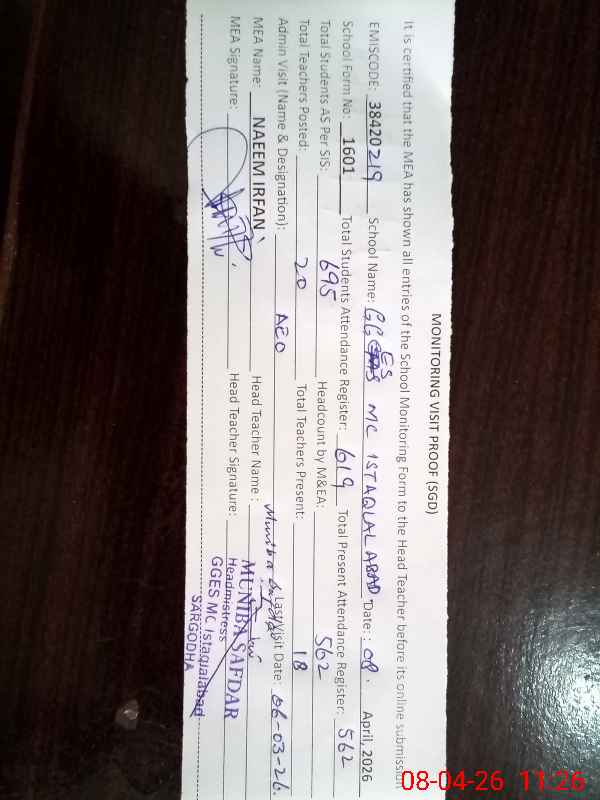 MONITORING VISIT PROOF (SGD)
It is certified that the MEA has shown all entries of the School Monitoring Form to the Head Teacher before its online submission
EMISCODE: 38420219 School Name: GGES MC ISTAQLALABAD Date: 08. April, 2026
School Form No: 1601 Total Students Attendance Register: 619 Total Present Attendance Register: 562
Total Students AS Per SIS: 695 Headcount by M&EA: 562
Total Teachers Posted: 20 Total Teachers Present: 18
Admin Visit (Name & Designation): AEO Last Visit Date: 06-03-26.
MEA Name: NAEEM IRFAN Head Teacher Name: Muniba Safdar
MEA Signature: Head Teacher Signature:
MUNIBA SAFDAR
Headmistress
GGES MC, Istaqlalabad
SARGODHA
08-04-26 11:26